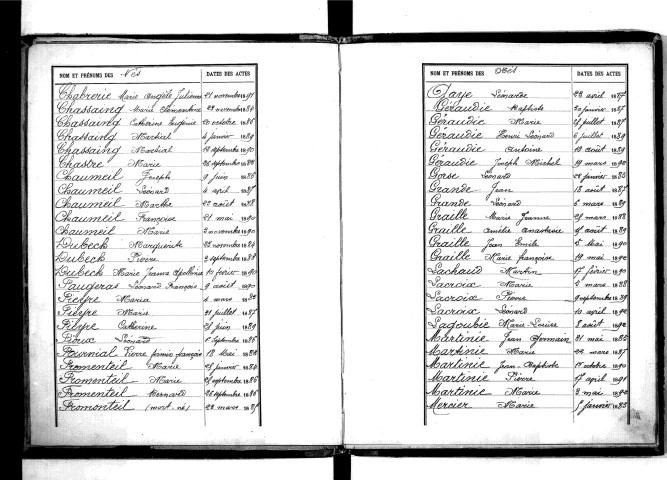 NOM ET PRÉNOMS DES Nés DATES DES ACTES
Chabrerie Marie Angèle Julienne 21 novembre 1891
Chassaing Marie Clementine 22 novembre 1884
Chassaing Catherine Eugénie 20 octobre 1886
Chassaing Martial 4 janvier 1889
Chassaing Martial 18 septembre 1890
Chastre Marie 26 septembre 1888
Chaumeil Joseph 9 juin
Chaumeil Léonard 4 avril 1887
Chaumeil Marthe 22 août 1888
Chaumeil Françoise 21 mai 1890
Chaumeil Marie 3 novembre 1890
Dubeck Marguerite 23 novembre 1884
Dubeck Pierre 3 septembre 1888
Dubeck Marie Jeanne 10 février 1890
Faugeras Léonard François 9 août 1890
Maria 4 mars
Marie 21 juillet 1887
Catherine 25 juin 1889
Léonard septembre
Fournial Pierre français 18 Mai
Fromenteil Marie 25 janvier 1884
Fromenteil Marie septembre
Fromenteil Bernard 26 septembre
Fromonteil (mort né) 22 mars
NOM ET PRÉNOMS DES Décès DATES DES ACTES
Faye Léonarde 22 avril 1887
Géraudie Baptiste 20 janvier 1887
Géraudie Marie juillet 1887
Géraudie Henri Léonard 6 juillet 1889
Géraudie Antoine 19 août 1889
Géraudie Joseph Michel 19 mars
Gorse Léonard 22 janvier 1885
Grande Jean 18 août 1887
Grande Léonard mars 1889
Graille Marie Jeanne 21 mars 1888
Graille Amélie Anastasie août 1889
Graille Jean Emile 5 Mai 1890
Graille Marie françoise 19 mai
Lachaud Martin 17 février 1890
Lacroix Marie 2 mars 1888
Lacroix Pierre 9 septembre 1889
Lacroix Léonard 10 avril
Lagoubie Marie Louise 8 août
Martinie Jean Germain 21 mai 1885
Martinie Marie 22 mars 1887
Martinie Jean Baptiste octobre 1890
Martinie Pierre 17 avril 1891
Martinie Marie 3 mai
Mercier Marie janvier 1885